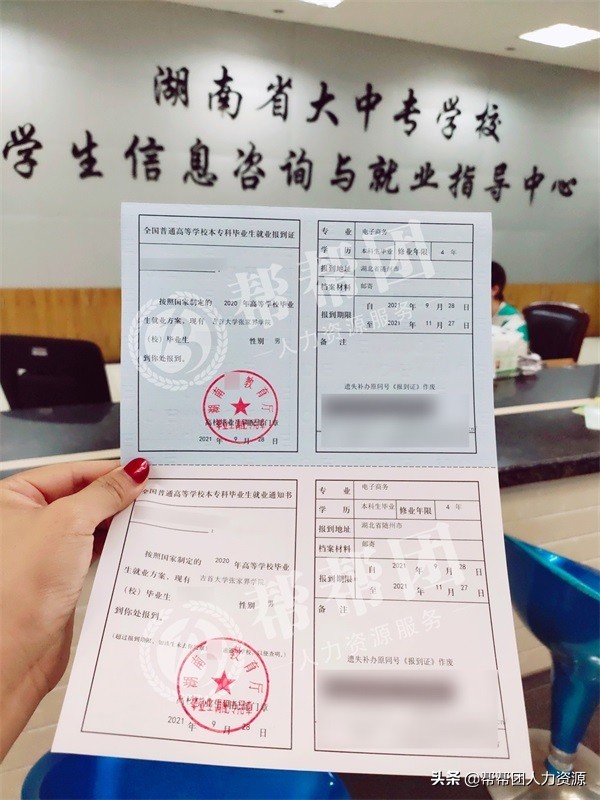 湖南省大中专学校
学生信息咨询与就业指导中心
全国普通高等学校本专科毕业生就业报到证
按照国家制定的 2020 年高等学校毕业
生就业方案，现有 吉首大学张家界学院
（校）毕业生 性别 男
到你处报到。
湖南 教育厅
高校毕业生调配部门章
2021 年 9 月 28 日
专业 电子商务
学历 本科生毕业 修业年限 4 年
报到地址 湖北省随州市
档案材料 邮寄
报到期限 自 2021 年 9 月 28 日
至 2021 年 11 月 27 日
备注
遗失补办原同号《报到证》作废
全国普通高等学校本专科毕业生就业通知书
按照国家制定的 2020 年高等学校毕业
生就业方案，现有 吉首大学张家界学院
（校）毕业生 性别 男
到你处报到。
湖南 教育厅
高校毕业生调配部门章
2021 年 9 月 28 日
专业 电子商务
学历 本科生毕业 修业年限 4 年
报到地址 湖北省随州市
档案材料 邮寄
报到期限 自 2021 年 9 月 28 日
至 2021 年 11 月 27 日
备注
遗失补办原同号《报到证》作废
帮帮团
人力资源服务
帮帮团
人力资源服务
头条 @帮帮团人力资源